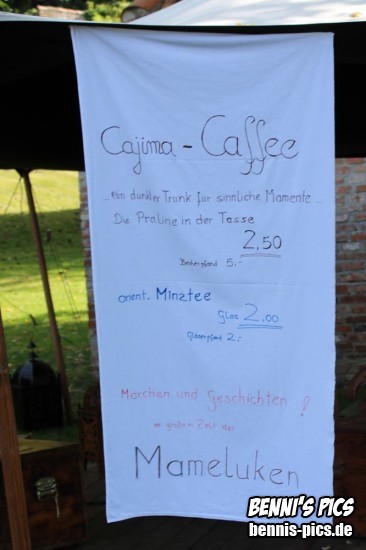 Cajima - Caffee
... ein dunkler Trunk für sinnliche Momente ...
Die Praline in der Tasse
2,50
Becherpfand 5,-
orient. Minztee
Glas 2,00
Gläserpfand 2,-
Märchen und Geschichten !
im großen Zelt der
Mameluken
BENNI'S PICS
bennis-pics.de